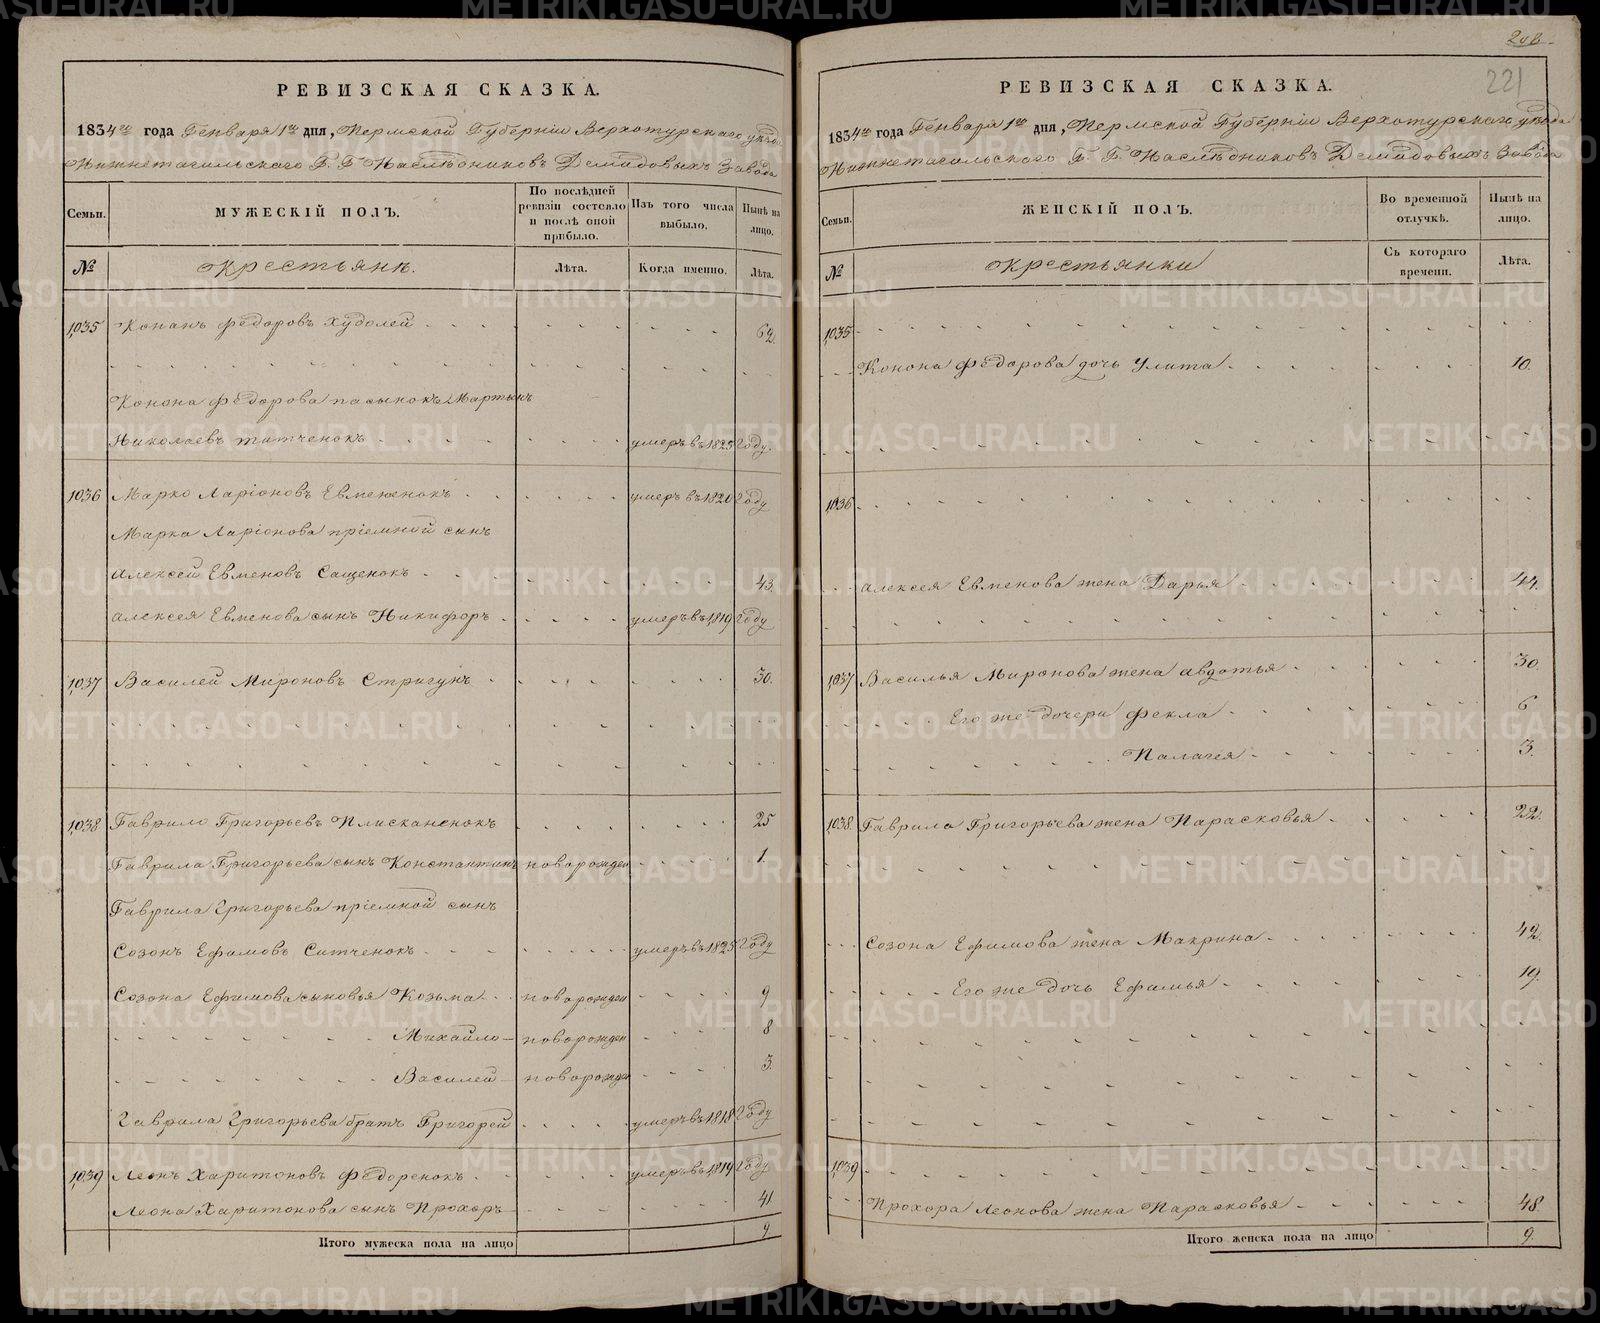 РЕВИЗСКАЯ СКАЗКА.
1834го года Генваря 1го дня, Пермской Губерніи Верхотурскаго уезда
Нижнетагильскаго Г. Г. Наслѣдниковъ Демидовыхъ Завода
Семьи.
МУЖЕСКІЙ ПОЛЪ.
По послѣдней ревизіи состояло и послѣ оной прибыло.
Изъ того числа выбыло.
Нынѣ на лицо.
№
Крестьянѣ.
Лѣта.
Когда именно.
Лѣта.
1035 Конанъ Федоровъ Худолей 62.
Конона Федорова пасынокъ Мартынъ
Николаевъ титченокъ умеръ въ 1825 Году.
1036 Марко Ларіоновъ Евмененокъ умеръ въ 1820 Году
Марка Ларіонова пріемной сынъ
Алексей Евменовъ Сащенокъ 43.
Алексея Евменова сынъ Никифоръ умеръ въ 1819 Году
1037 Василей Мироновъ Стригунъ 30.
1038 Гаврило Григорьевъ Плисканенокъ 25
Гаврила Григорьева сынъ Константинъ новорожден 1.
Гаврила Григорьева пріемной сынъ
Созонъ Ефимовъ Ситченокъ умеръ въ 1825 Году
Созона Ефимова сыновья Козьма новорожден 9
Михайло новорожден 8
Василей новорожден 3.
Гаврила Григорьева братъ Григорей умеръ въ 1818 Году
1039 Леонъ Харитоновъ Федоренокъ умеръ въ 1819 Году
Леона Харитонова сынъ Прохоръ 41.
Итого мужеска пола на лицо 9
208.
221
РЕВИЗСКАЯ СКАЗКА.
1834го года Генваря 1го дня, Пермской Губерніи Верхотурскаго уезда
Нижнетагильскаго Г. Г. Наслѣдниковъ Демидовыхъ Завода
Семьи.
ЖЕНСКІЙ ПОЛЪ.
Во временной отлучкѣ.
Нынѣ на лицо.
№
Крестьянки
Съ котораго времени.
Лѣта.
1035
Конона Федорова дочь Улита 10.
1036
Алексея Евменова жена Дарья 44.
1037 Василья Миронова жена Авдотья 30.
Его же дочери Фекла 6
Палагея 3.
1038. Гаврила Григорьева жена Парасковья 22.
Созона Ефимова жена Макрина 42.
Его же дочь Ефимья 19.
1039
Прохора Леонова жена Парасковья 48.
Итого женска пола на лицо 9.
METRIKI.GASO-URAL.RU